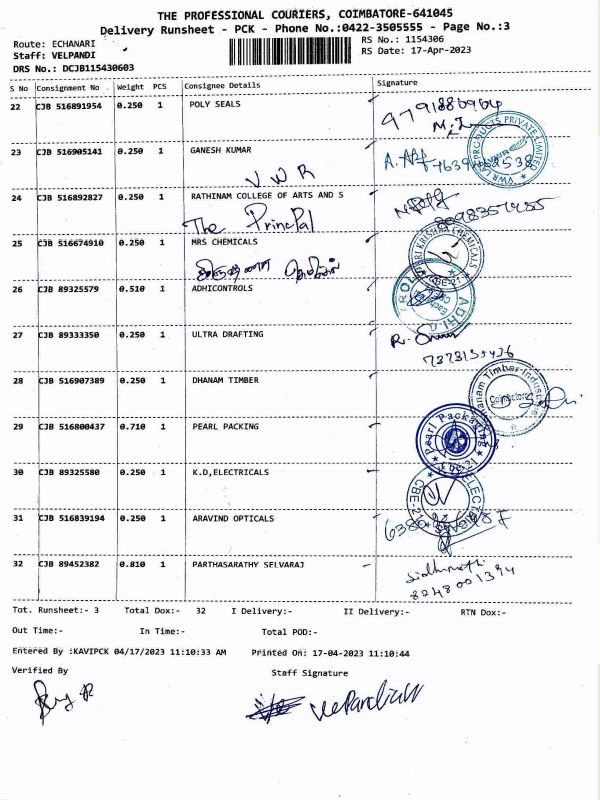 THE PROFESSIONAL COURIERS, COIMBATORE-641045
Delivery Runsheet - PCK - Phone No.:0422-3505555 - Page No.:3
Route: ECHANARI
RS No.: 1154306
Staff: VELPANDI
RS Date: 17-Apr-2023
DRS No.: DCJB115430603
S No Consignment No Weight PCS Consignee Details Signature
22 CJB 516891954 0.250 1 POLY SEALS
23 CJB 516905141 0.250 1 GANESH KUMAR
VWR
24 CJB 516892827 0.250 1 RATHINAM COLLEGE OF ARTS AND S
The Principal
25 CJB 516674910 0.250 1 MRS CHEMICALS
26 CJB 89325579 0.510 1 ADHICONTROLS
27 CJB 89333350 0.250 1 ULTRA DRAFTING
28 CJB 516907389 0.250 1 DHANAM TIMBER
29 CJB 516800437 0.710 1 PEARL PACKING
Pearl Packaging
30 CJB 89325580 0.250 1 K.D,ELECTRICALS
31 CJB 516839194 0.250 1 ARAVIND OPTICALS
32 CJB 89452382 0.810 1 PARTHASARATHY SELVARAJ
Tot. Runsheet:- 3 Total Dox:- 32 I Delivery:- II Delivery:- RTN Dox:-
Out Time:- In Time:- Total POD:-
Entered By :KAVIPCK 04/17/2023 11:10:33 AM Printed On: 17-04-2023 11:10:44
Verified By Staff Signature